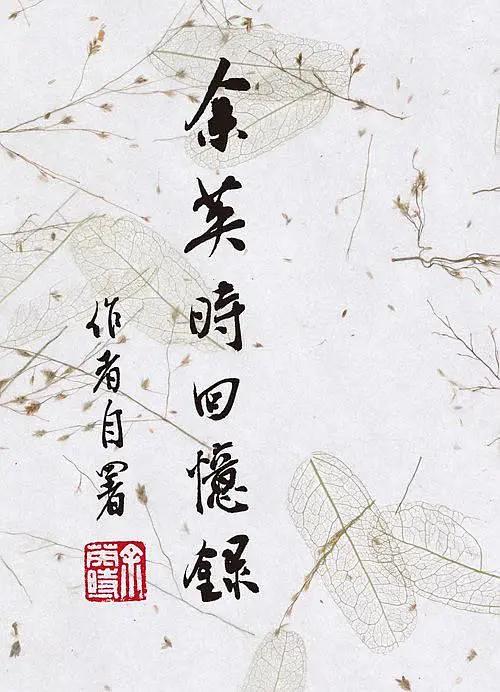 余英時回憶録
作者自署
余英時